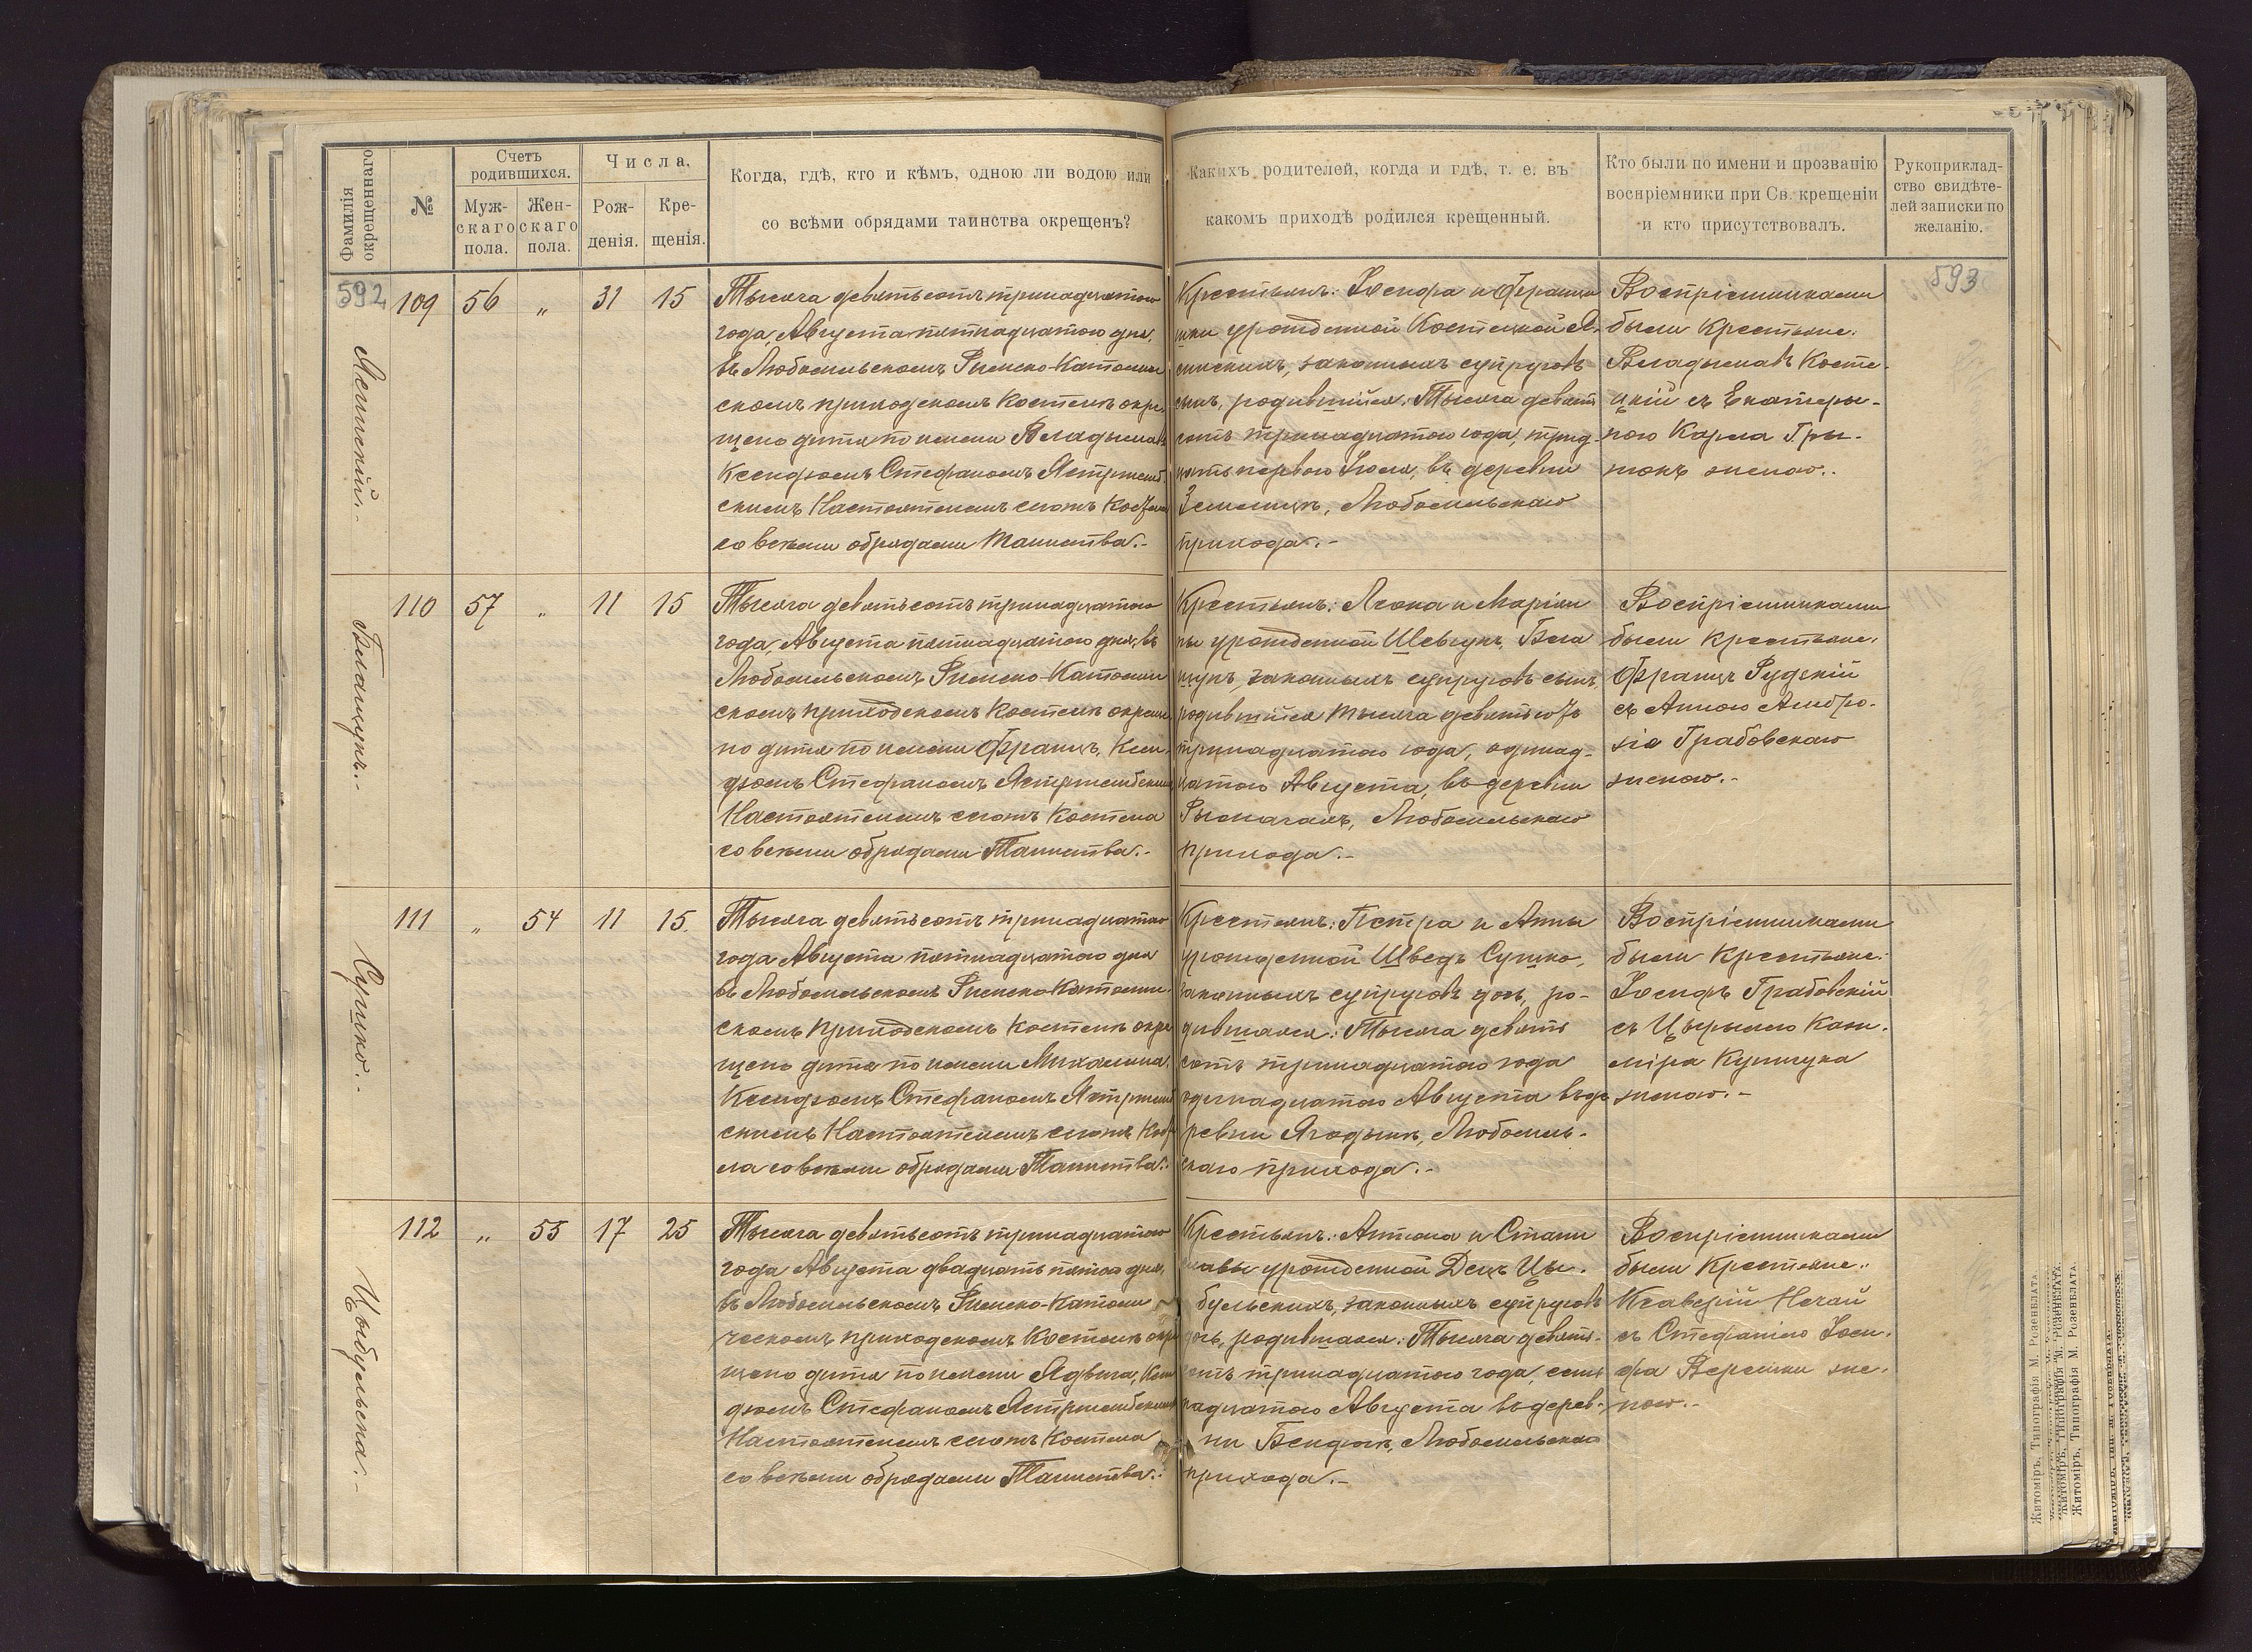 Фамилія окрещеннаго
№
Счетъ родившихся.
Муж-скаго пола.
Жен-скаго пола.
Числа.
Рож-денія.
Кре-щенія.
Когда, гдѣ, кто и кѣмъ, одною ли водою или
со всѣми обрядами таинства окрещенъ?
Какихъ родителей, когда и гдѣ, т. е. въ
какомъ приходѣ родился крещенный.
Кто были по имени и прозванію
воспріемники при Св. крещеніи
и кто присутствовалъ.
Рукоприклад-
ство свидѣте-
лей записки по
желанію.
592
593
109 56 „ 31 15
Тысяча девятьсотъ тринадцатого
года, Августа пятнадцатого дня,
въ Любомльскомъ Римско-Католиче
скомъ приходскомъ Костелѣ окре
щено дитя по имени Владыславъ
Ксендзомъ Стефаномъ Ястржемб
скимъ Настоятелемъ сего Костела
со всѣми обрядами Таинства.-
Крестьянъ: Іосифа и Франци
шки урожденной Костецкой
законныхъ супруговъ
сынъ, родившійся: Тысяча девять
сотъ тринадцатого года, трид-
цать перваго Іюля, въ деревни
Любомльскаго
прихода.-
Воспріемниками
были Крестьяне:
Владыславъ Косте-
цкій съ Екатеры-
ною Карла Гры-
женою.-
110 57 „ 11 15
Билащукъ.-
Тысяча девятьсотъ тринадцатого
года, Августа пятнадцатого дня, въ
Любомльскомъ Римско-Католиче
скомъ приходскомъ Костелѣ окреще
но дитя по имени Францъ, Ксен-
дзомъ Стефаномъ Ястржембскимъ
Настоятелемъ сего Костела
со всѣми обрядами Таинства.-
Крестьянъ: Леона и Маріан
ны урожденной Шевчукъ, Била
щукъ, законныхъ супруговъ сынъ,
родившійся Тысяча девятьсотъ
тринадцатого года, одинад-
цатого Августа, въ деревни
Рымачахъ, Любомльскаго
прихода.-
Воспріемниками
были Крестьяне:
Францъ Рудскій
съ Анною Амбро-
зія Грабовскаго
женою.-
111 „ 54 11 15.
Сушко.-
Тысяча девятьсотъ тринадцатого
года Августа пятнадцатого дня
въ Любомльскомъ Римско-Католиче-
скомъ приходскомъ Костелѣ окре
щено дитя по имени Михалина,
Ксендзомъ Стефаномъ Ястржемб
скимъ Настоятелемъ сего Косте
ла со всѣми обрядами Таинства.-
Крестьянъ: Петра и Анны
урожденной Шведъ Сушко,
законныхъ супруговъ дочь, ро-
дившаяся: Тысяча девять
сотъ тринадцатого года
одинадцатого Августа въ де
ревни Ягодынѣ, Любомль-
скаго прихода.-
Воспріемниками
были Крестьяне:
Іосифъ Грабовскій
съ Цырылею Кази-
міра Купчука
женою.-
112 „ 55 17 25
Цыбульска.-
Тысяча девятьсотъ тринадцатого
года Августа двадцать пятого дня,
въ Любомльскомъ Римско-Католи
ческомъ приходскомъ Костелѣ окре
щено дитя по имени Ядвига, Ксен
дзомъ Стефаномъ Ястржембскимъ
Настоятелемъ сего Костела
со всѣми обрядами Таинства.-
Крестьянъ: Антона и Стани
славы урожденной Децъ Цы-
бульскихъ, законныхъ супруговъ
дочь, родившаяся: Тысяча девять-
сотъ тринадцатого года, сем
надцатого Августа въ дерев-
ни Бендюгѣ, Любомльскаго
прихода.-
Воспріемниками
были Крестьяне:
Ксаверій Нечай
съ Стефаніею Іоси-
фа Верешки же-
ною.-
Житоміръ, Типографія М. Розенблата.
Житоміръ, Типографія М. Розенблата.
Житоміръ, Типографія М. Розенблата.